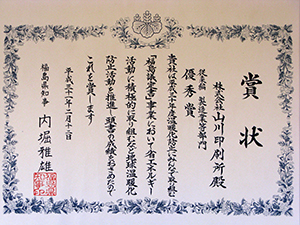 賞状
株式会社山川印刷所殿
従業編 製造業等部門
優秀賞
貴社は平成三十年度温暖化防止にみんなで取り組む
「福島議定書」事業において省エネルギー
活動に積極的に取り組むなど地球温暖化
防止活動を推進し頭書の成績をおさめたので
これを賞します
平成三十一年二月十二日
福島県知事 内堀雅雄